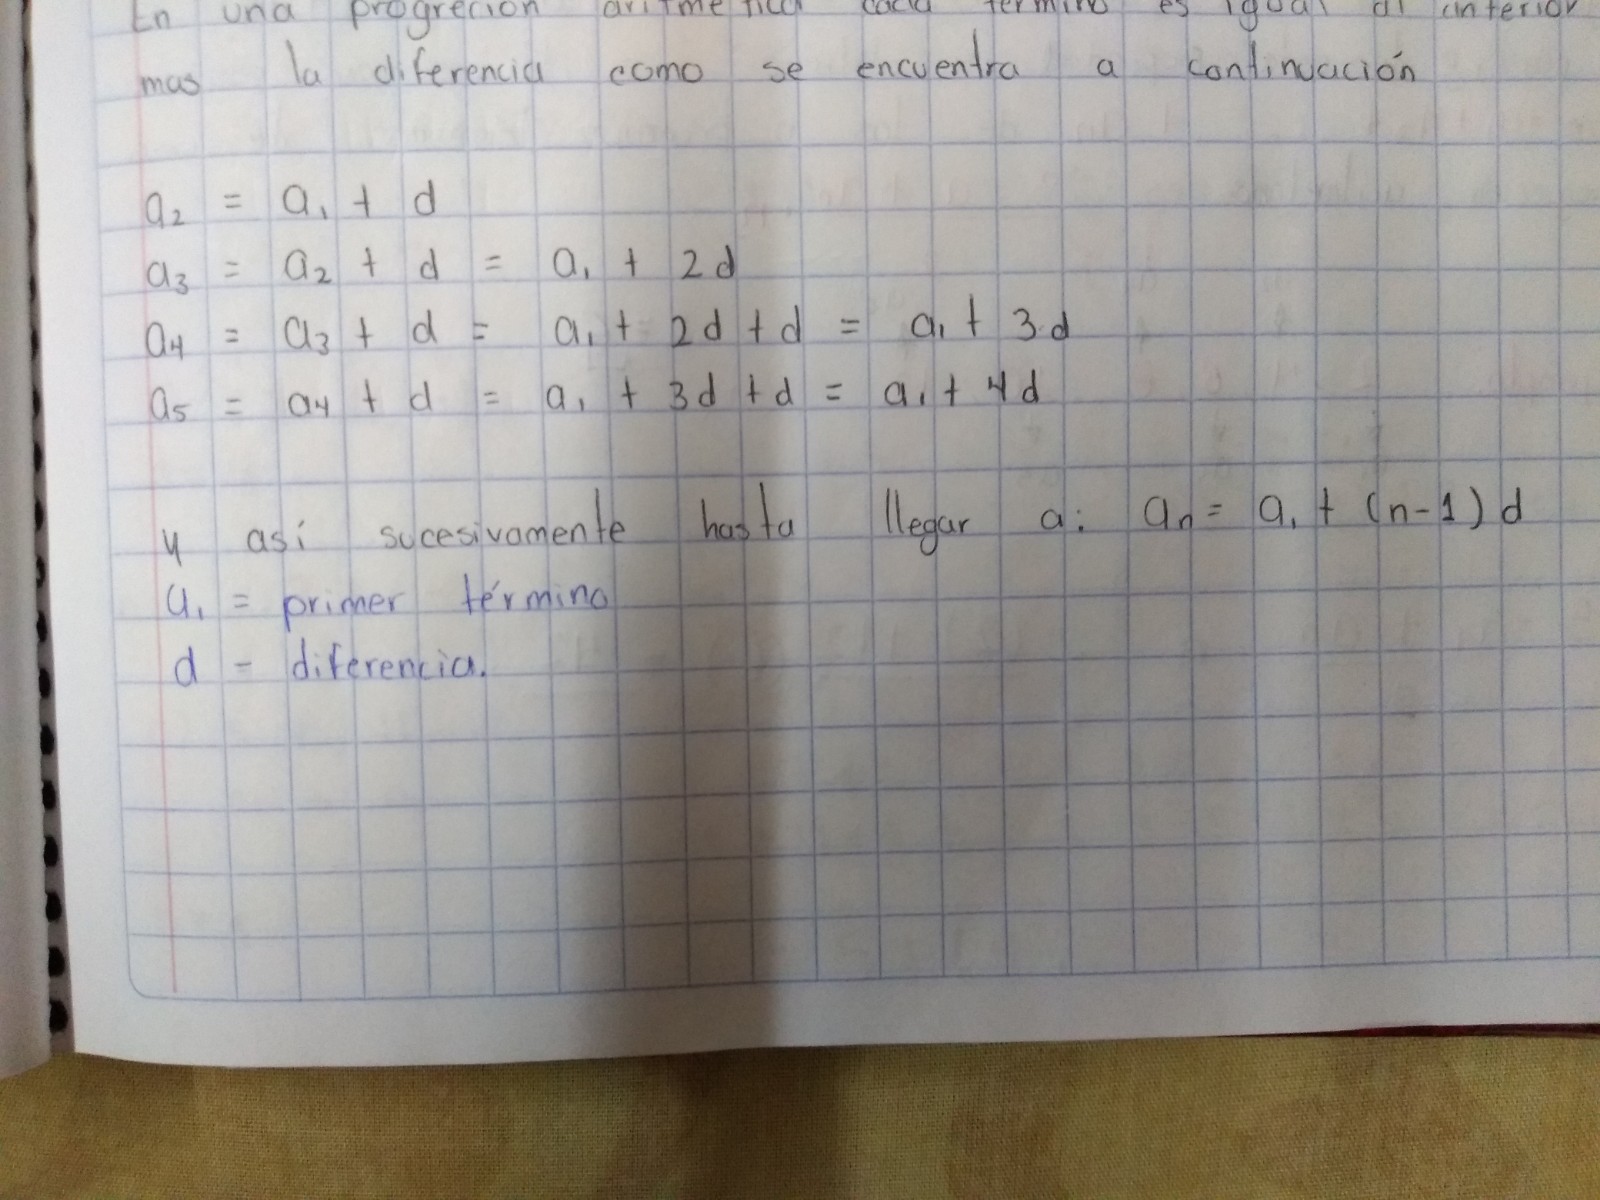 En una progrecion aritmetica cada termino es igual al anterior
mas la diferencia como se encuentra a continuación
a2 = a1 + d
a3 = a2 + d = a1 + 2d
a4 = a3 + d = a1 + 2d + d = a1 + 3d
a5 = a4 + d = a1 + 3d + d = a1 + 4d
y así sucesivamente hasta llegar a: an = a1 + (n-1) d
a1 = primer término
d = diferencia.